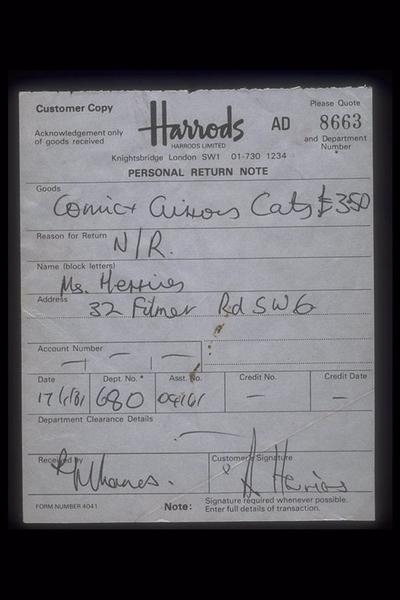 Customer Copy
Acknowledgement only
of goods received
Harrods
HARRODS LIMITED
Knightsbridge London SW1 01-730 1234
AD
Please Quote
8663
and Department
Number
PERSONAL RETURN NOTE
Goods
Cats £350
Reason for Return N/R.
Name (block letters)
Ms. Herries
Address
32 Filmer Rd SW6
Account Number
— — —
Date
17/1/81
Dept. No.*
680
Asst. No.
Credit No.
—
Credit Date
—
Department Clearance Details
Received by
Customer Signature
FORM NUMBER 4041
Note: Signature required whenever possible.
Enter full details of transaction.